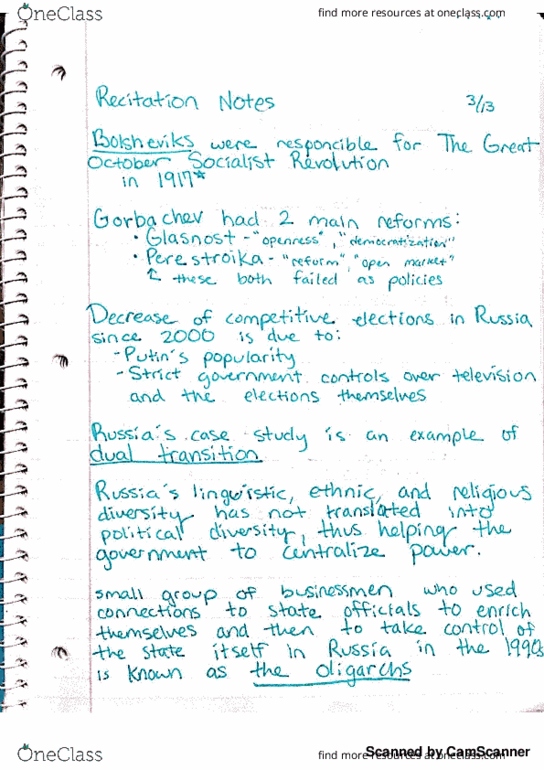 OneClass
find more resources at oneclass.com
Recitation Notes 3/13
Bolsheviks were responcible for The Great
October Socialist Revolution
in 1917*
Gorbachev had 2 main reforms:
• Glasnost - "openness", "democratization"
• Perestroika - "reform", "open market"
↳ these both failed as policies
Decrease of competitive elections in Russia
since 2000 is due to:
- Putin's popularity
- Strict government controls over television
and the elections themselves
Russia's case study is an example of
dual transition
Russia's linguistic, ethnic, and religious
diversity has not translated into
political diversity, thus helping the
government to centralize power.
small group of businessmen who used
connections to state officials to enrich
themselves and then to take control of
the state itself in Russia in the 1990s
is known as the oligarchs
OneClass
find more resources at oneclass.com
Scanned by CamScanner